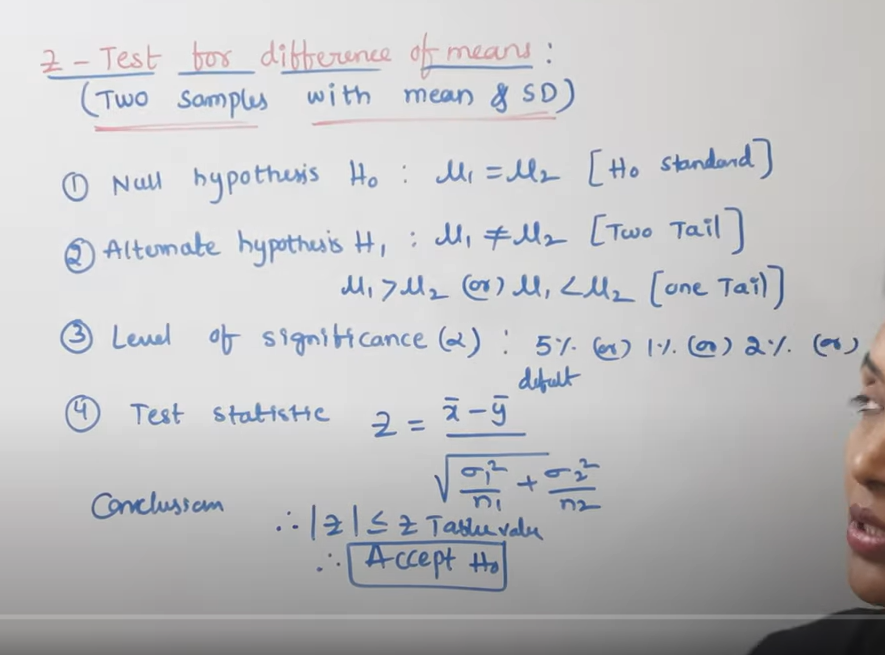 Z - Test for difference of means :
(Two samples with mean & SD)
① Null hypothesis H₀ : μ₁ = μ₂ [H₀ standard]
② Alternate hypothesis H₁ : μ₁ ≠ μ₂ [Two Tail]
μ₁ > μ₂ (or) μ₁ < μ₂ [one Tail]
③ Level of significance (α) : 5% (or) 1% (or) 2% (or)
default
④ Test statistic Z = x̄ - ȳ / √(σ₁²/n₁ + σ₂²/n₂)
Conclusion
∴ |z| ≤ z Table value
∴ Accept H₀